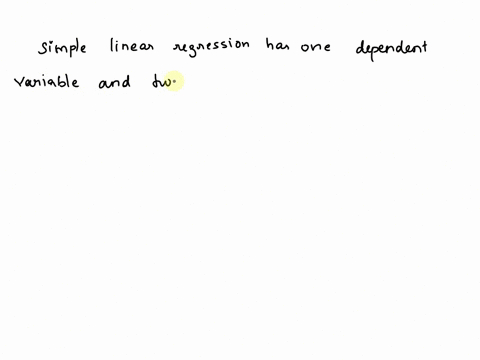 Simple linear regression has one dependent
variable and two